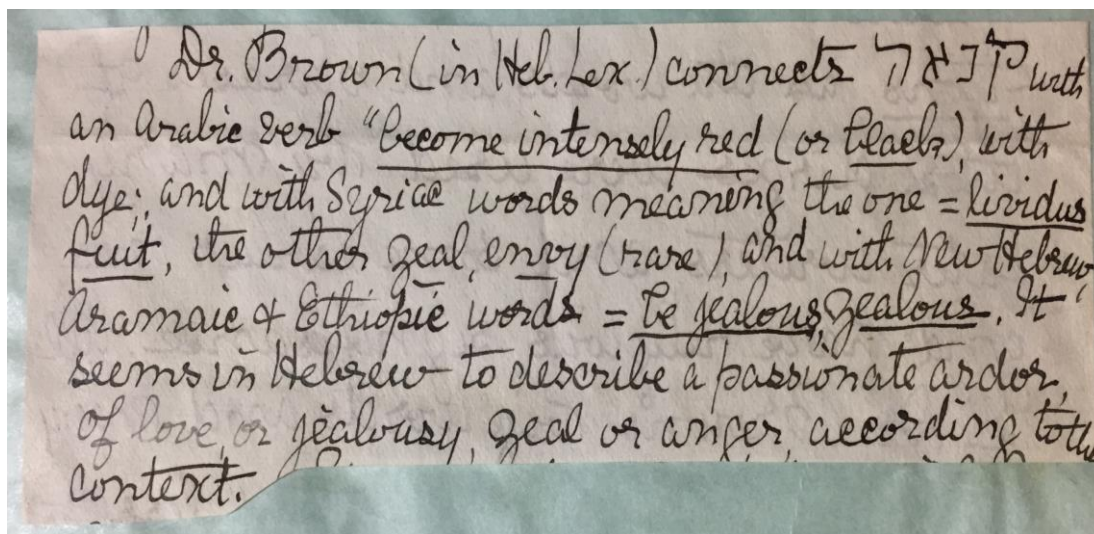 Dr. Brown (in Heb. Lex.) connects קנאה with
an Arabic verb "become intensely red (or black), with
dye; and with Syriac words meaning the one = lividus
fuit, the other zeal, envy (rare), and with New Hebrew,
Aramaic & Ethiopic words = be jealous, zealous. It
seems in Hebrew to describe a passionate ardor,
of love, or jealousy, zeal or anger, according to the
context.